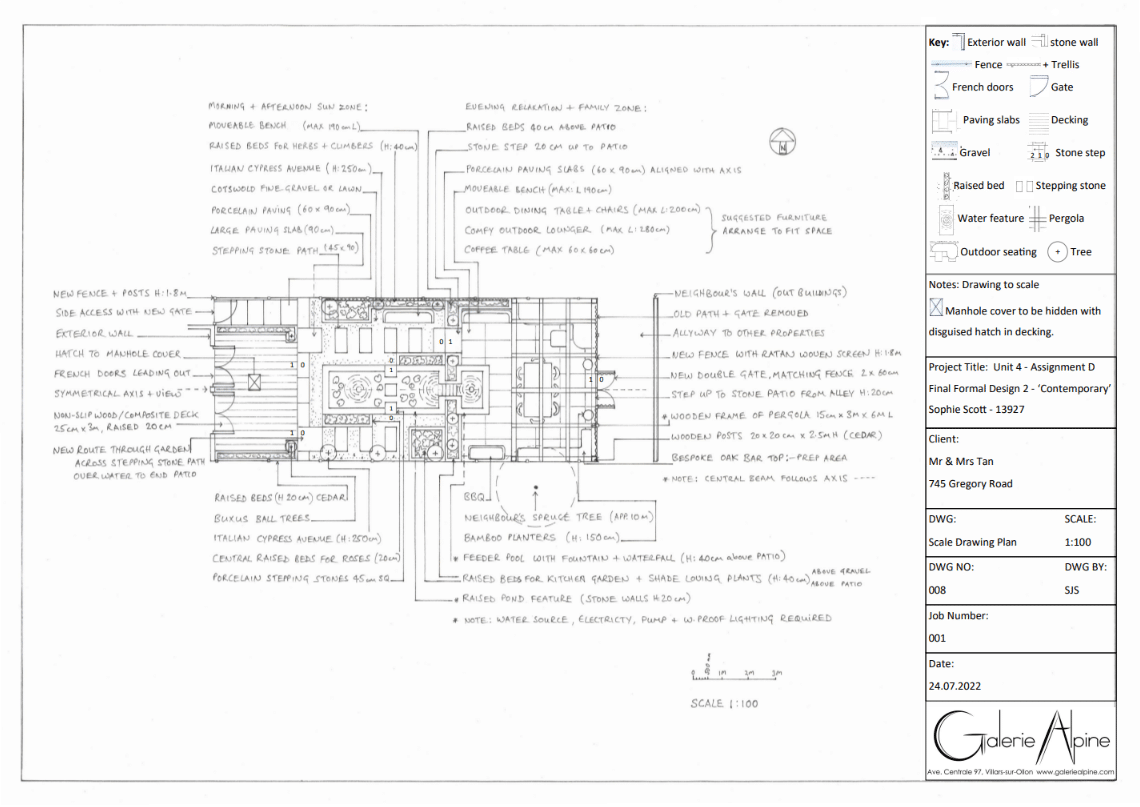 MORNING + AFTERNOON SUN ZONE:
MOVEABLE BENCH (MAX 190cm L)
RAISED BEDS FOR HERBS + CLIMBERS (H:40cm)
ITALIAN CYPRESS AVENUE (H:250cm)
COTSWOLD FINE GRAVEL OR LAWN
PORCELAIN PAVING (60 x 90cm)
LARGE PAVING SLAB (90cm)
STEPPING STONE PATH (45x90)
EVENING RELAXATION + FAMILY ZONE:
RAISED BEDS 40cm ABOVE PATIO
STONE STEP 20 CM UP TO PATIO
PORCELAIN PAVING SLABS (60 x 90cm) ALIGNED WITH AXIS
MOVEABLE BENCH (MAX: L 190cm)
OUTDOOR DINING TABLE + CHAIRS (MAX L:200cm)
COMFY OUTDOOR LOUNGER (MAX L:280cm)
COFFEE TABLE (MAX 60x60cm)
SUGGESTED FURNITURE
ARRANGE TO FIT SPACE
N
NEW FENCE + POSTS H:1.8m
SIDE ACCESS WITH NEW GATE
EXTERIOR WALL
HATCH TO MANHOLE COVER
FRENCH DOORS LEADING OUT
SYMMETRICAL AXIS + VIEW
NON-SLIP WOOD/COMPOSITE DECK
25cm x 3m, RAISED 20cm
NEW ROUTE THROUGH GARDEN
ACROSS STEPPING STONE PATH
OVER WATER TO END PATIO
0 1
0
1
1 0
1 0
1
0
1 0
NEIGHBOUR'S WALL (OUT BUILDINGS)
OLD PATH + GATE REMOVED
ALLYWAY TO OTHER PROPERTIES
NEW FENCE WITH RATAN WOVEN SCREEN H:1.8m
NEW DOUBLE GATE, MATCHING FENCE 2 x 60cm
STEP UP TO STONE PATIO FROM ALLEY H:20cm
* WOODEN FRAME OF PERGOLA 15cm x 3m x 6m L
WOODEN POSTS 20x20cm x 2.5m H (CEDAR)
BESPOKE OAK BAR TOP:-PREP AREA
* NOTE: CENTRAL BEAM FOLLOWS AXIS ----
RAISED BEDS (H 20cm) CEDAR
BUXUS BALL TREES
ITALIAN CYPRESS AVENUE (H:250cm)
CENTRAL RAISED BEDS FOR ROSES (20cm)
PORCELAIN STEPPING STONES 45cm SQ
BBQ
NEIGHBOUR'S SPRUCE TREE (APP.10m)
BAMBOO PLANTERS (H: 150cm)
* FEEDER POOL WITH FOUNTAIN + WATERFALL (H:40cm above PATIO)
RAISED BEDS FOR KITCHEN GARDEN + SHADE LOVING PLANTS (H:40cm) ABOVE GRAVEL
ABOVE PATIO
* RAISED POND FEATURE (STONE WALLS H:20cm)
* NOTE: WATER SOURCE, ELECTRICTY, PUMP + W.PROOF LIGHTING REQUIRED
0 1M 2M 3M
SCALE 1:100
Key: Exterior wall stone wall
Fence + Trellis
French doors Gate
Paving slabs Decking
Gravel 2 1 0 Stone step
Raised bed Stepping stone
Water feature Pergola
Outdoor seating Tree
Notes: Drawing to scale
Manhole cover to be hidden with
disguised hatch in decking.
Project Title: Unit 4 - Assignment D
Final Formal Design 2 - 'Contemporary'
Sophie Scott - 13927
Client:
Mr & Mrs Tan
745 Gregory Road
DWG: SCALE:
Scale Drawing Plan 1:100
DWG NO: DWG BY:
008 SJS
Job Number:
001
Date:
24.07.2022
Galerie Alpine
Ave. Centrale 97, Villars-sur-Ollon www.galeriealpine.com